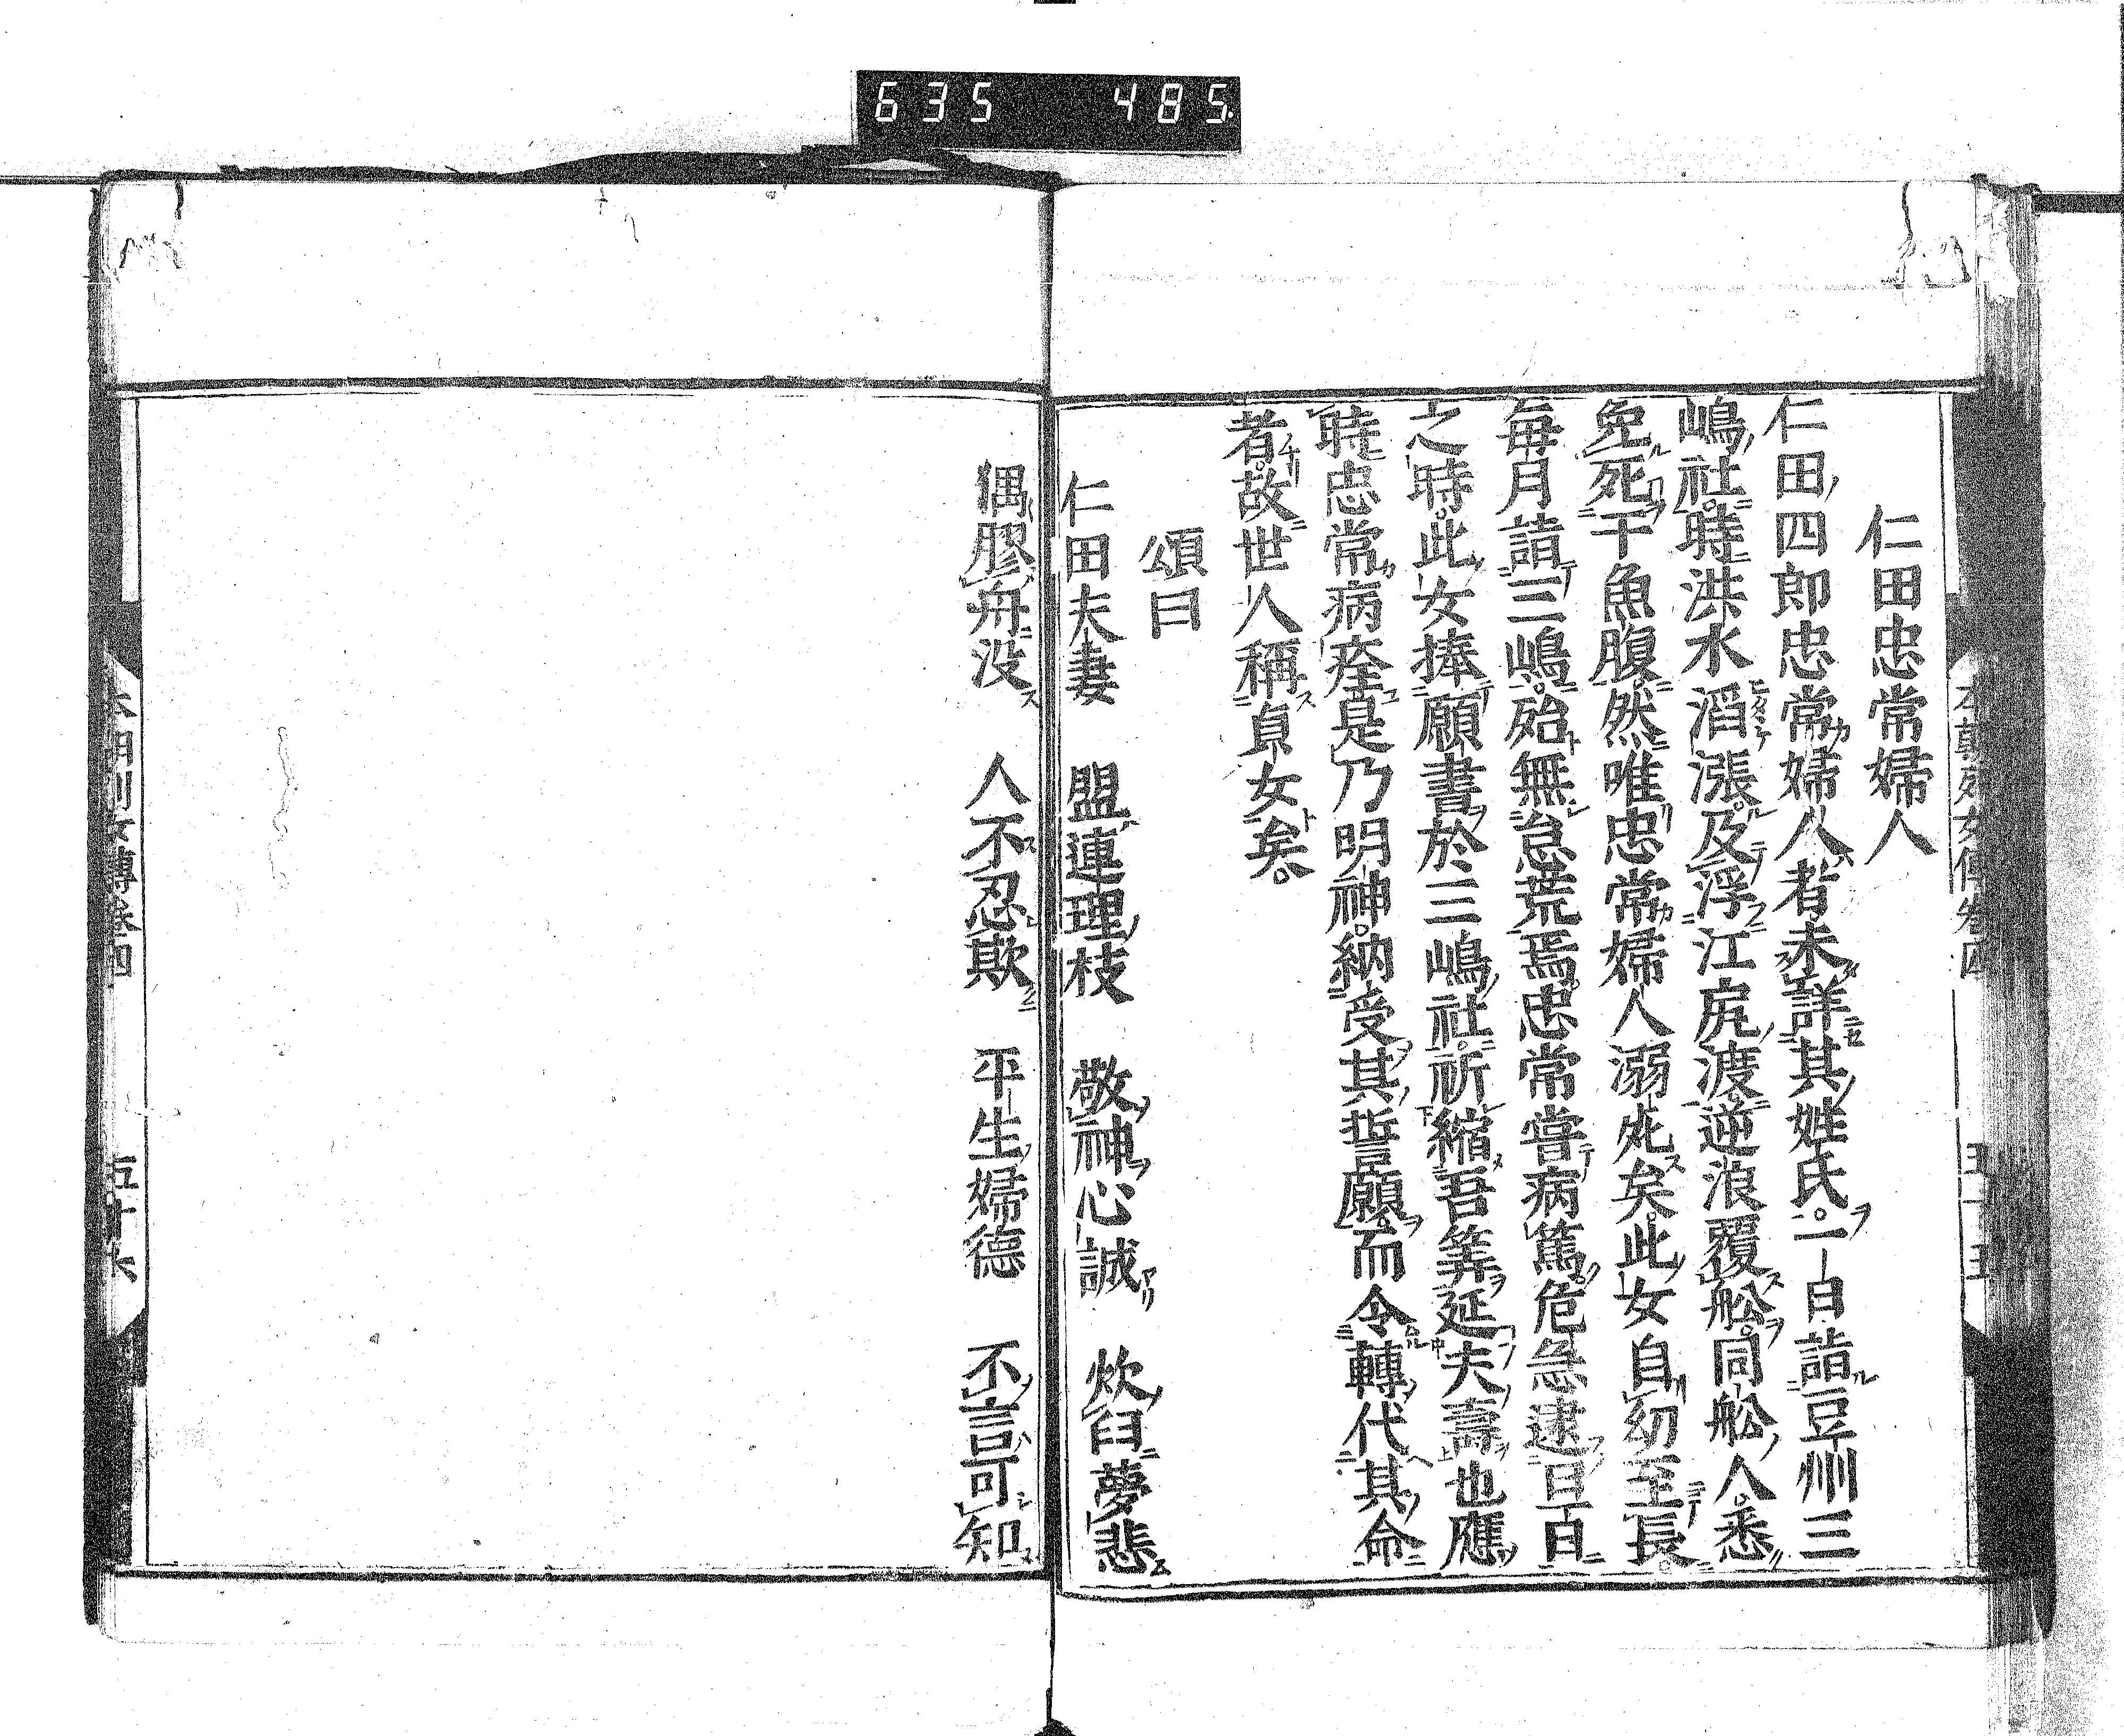 635 485
仁田忠常婦人
仁田四郎忠常婦人者未詳其姓氏一日詣豆州三
嶋社時洪水滔漲及浮江尻渡逆浪覆舩同舩人悉
免死于魚腹然唯忠常婦人溺死矣此女自幼至長
毎月詣三嶋殆無怠荒焉忠常甞病篤危急逮日百
之時此女捧願書於三嶋社祈縮吾筭延夫壽也應
時忠常病痊是乃明神納受其誓願而令轉代其命
者故世人稱貞女矣
頌曰
仁田夫妻 盟連理枝 敬神心誠 炊臼夢悲
猧膠舟没 人不忍欺 平生婦德 不言可知
本朝列女傳卷四 五十五
本朝列女傳卷四 五十六